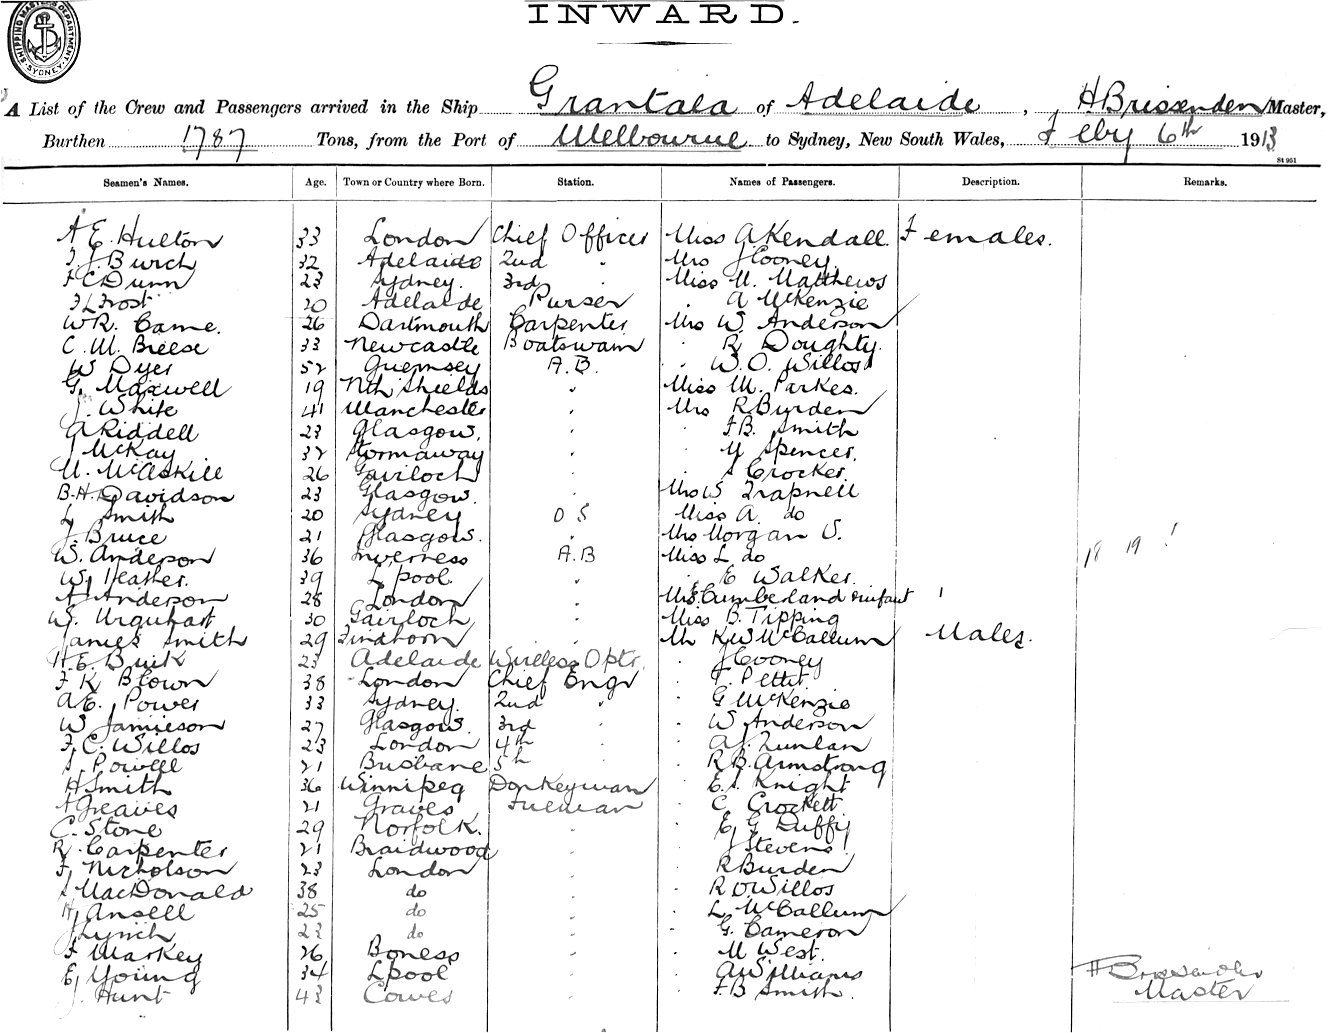 SHIPPING MASTER'S DEPARTMENT SYDNEY
INWARD.
A List of the Crew and Passengers arrived in the Ship Grantala of Adelaide, H Brissenden Master,
Burthen 1787 Tons, from the Port of Melbourne to Sydney, New South Wales, Feby 6th 1913
St 951
Seamen's Names. Age. Town or Country where Born. Station. Names of Passengers. Description. Remarks.
A E. Hulton 33 London Chief Officer Miss A. Kendall. Females.
F J. Burch 32 Adelaide 2nd " Mrs J Cooney
F C Dunn 23 Sydney. 3rd " Miss M. Matthews
F L Frost 20 Adelaide Purser " A McKenzie
W R. Came. 26 Dartmouth Carpenter Mrs W. Anderson
C. M. Breese 33 Newcastle Boatswain " R Doughty.
W Dyer 52 Guernsey A.B. " W. O. Willos
G. Maxwell 19 Nth Shields " Miss M. Parkes.
J. White 41 Manchester " Mrs R Burden
A Riddell 23 Glasgow. " " F B. Smith
J McKay 32 Stornaway " " Y Spencer.
M. McAskill 26 Gairloch " " S Crocker.
B. H. Davidson 23 Glasgow. " Mrs W Trapnell
L Smith 20 Sydney O S Miss A. do
J. Bruce 21 Glasgow. " Mrs Morgan S.
W. Anderson 36 Inverness A.B Miss L do 18 19 !
W. Heather. 39 L pool. " " E Walker.
A Anderson 28 London " Mrs Cumberland & infant 1
W. Urquhart 30 Gairloch " Miss B. Tipping
James Smith 29 Findhorn " Mr K W McCallum Males.
H. E. Buik 23 Adelaide Wireless Optr. " J Cooney
F K Blown 38 London Chief Engr " T. Pettit
A E. Power 33 Sydney. 2nd " " G McKenzie
W Jamieson 27 Glasgow. 3rd " W Anderson
F. C. Willos 23 London 4th " " A J. Quinlan
S. Powell 21 Brisbane 5th " R B. Armstrong
H Smith 36 Winnipeg Donkeyman " E. A. Knight
A Greaves 21 Graves Fireman " C Crockett
C. Stone 29 Norfolk. " " E G Duffy
R. Carpenter 21 Braidwood " " J Stevens
F. Nicholson 23 London " " R Burden
MacDonald 38 do " " R O Willos
H Ansell 25 do " " L McCallum
J Lynch 23 do " " G. Cameron
F Markey 26 Boness " " M West.
E. Young 34 L pool " " A Williams H Brissenden
J. Hunt 43 Cowes " " F. B Smith. Master